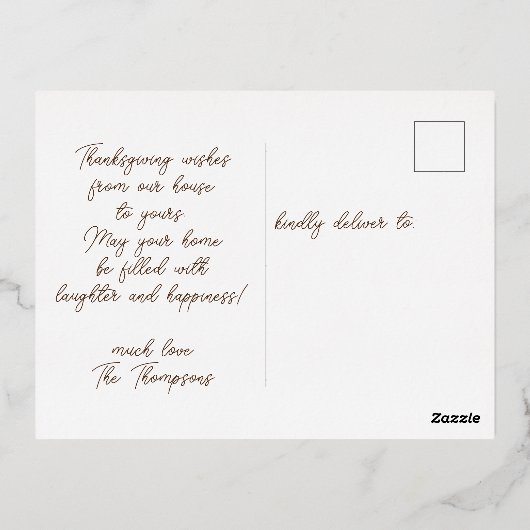 Thanksgiving wishes
from our house
to yours.
May your home
be filled with
laughter and happiness!
much love
The Thompsons
kindly deliver to:
Zazzle